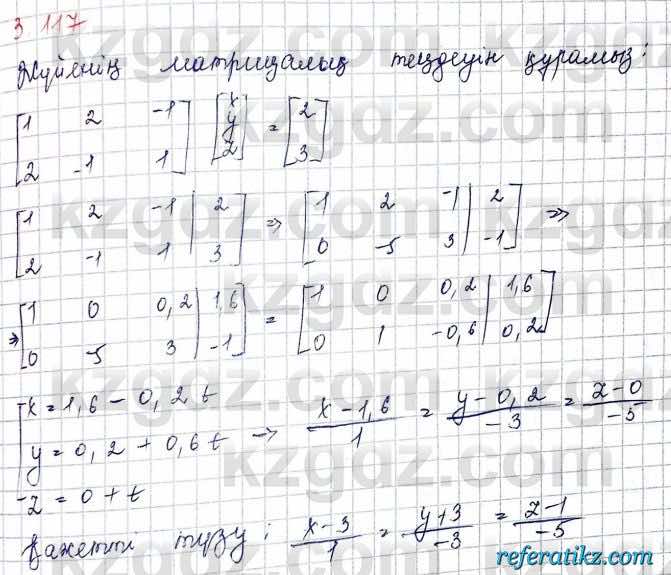 3 117
Жүйенің матрицалық теңдеуін құрамыз:
[1 2 -1; 2 -1 1] [x; y; z] = [2; 3]
[1 2 -1 | 2; 2 -1 1 | 3] => [1 2 -1 | 2; 0 -5 3 | -1] =>
=> [1 0 0,2 | 1,6; 0 -5 3 | -1] = [1 0 0,2 | 1,6; 0 1 -0,6 | 0,2]
x = 1,6 - 0,2 t
y = 0,2 + 0,6 t -> (x - 1,6)/1 = (y - 0,2)/-3 = (z - 0)/-5
z = 0 + t
Қажетті түзу: (x - 3)/1 = (y + 3)/-3 = (z - 1)/-5
kzgdz.com
referatikz.com